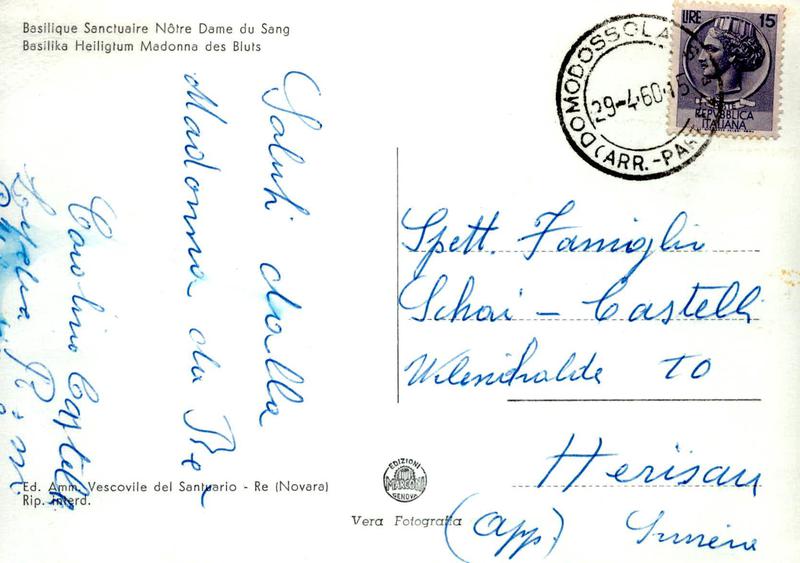 Basilique Sanctuaire Nôtre Dame du Sang
Basilika Heiligtum Madonna des Bluts
Saluti dalla
Madonna da Re
Carlino Castelli
Ed. Amm. Vescovile del Santuario - Re (Novara)
Rip. interd.
DOMODOSSOLA
29-4-60-15
(ARR.-PAR
LIRE 15
REPVBBLICA
ITALIANA
Spett. Famiglia
Schai - Castelli
70
Herisau
(App.) Svizzera
EDIZIONI
MARCONI
GENOVA
Vera Fotografia